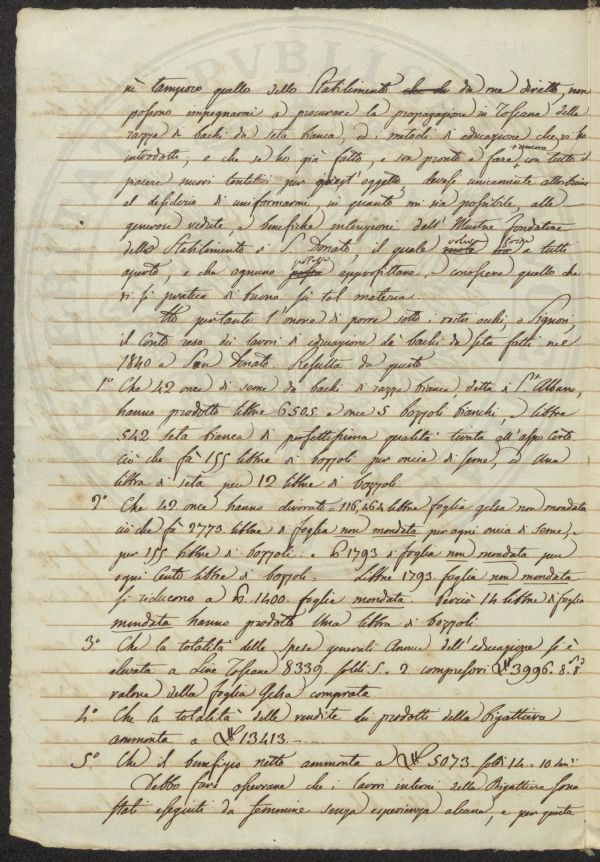 nè tampoco quello dello Stabilimento che di da me diretto, non
possono impegnarmi a procurare la propagazione in Toscana della
razza di bachi da seta bianca, ed i metodi di educazione che vi ho
introdotti, e che se ho già fatto, e son pronto a fare ancora, con tutto il
piacere nuovi tentativi per quest'oggetto, devesi unicamente attribuire
al desiderio di uniformarmi, in quanto mi sia possibile, alle
generose vedute, e benefiche intenzioni dell'Illustre fondatore
dello Stabilimento di S. Donato, il quale volesse fosse a tutti
aperto, e che ognuno potesse approfittare, e conoscere quello che
vi si pratica di buono su tal materia.
Ho pertanto l'onore di porre sotto i vostri occhi, o Signori,
il Conto reso dei lavori di educazione de' bachi da seta fatti nel
1840 a San Donato. Resulta da questo
1° Che 42 once di seme da bachi di razza bianca, detta di St Albano,
hanno prodotto libbre 6505 e once 5 bozzoli bianchi, e libbre
542 seta bianca di perfettissima qualità tirata all'aspo corto.
ciò che fà 155 libbre di bozzoli per oncia di seme, ed una
libbra di seta per 12 libbre di bozzoli
2° Che 42 once hanno divorato = 116,464 libbre foglia gelsa non mondata
ciò che fà 2773. libbre di foglia non mondata per ogni oncia di seme, e
per 155 libbre di bozzoli = e lb 1793 di foglia non mondata per
ogni Cento libbre di bozzoli = Libbre 1793 foglia non mondata
si riducono a lb. 1400. foglia mondata. Perciò 14 libbre di foglia
mondata hanno prodotto Una libbra di bozzoli.
3° Che la totalità delle spese generali Annue dell'educazione si è
elevata a Lire Toscane 8339 soldi 5. = 2 compresovi 3996. 8. 8
valore della foglia Gelsa comprata
4° Che la totalità delle vendite dei prodotti della Bigattiera
ammonta a 13413. —
5° Che il benefizio netto ammonta a 5073 soldi 14. = 10 dni
Debbo fare osservare che i lavori interni della Bigattiera sono
stati eseguiti da femmine senza esperienza alcuna, e per questa